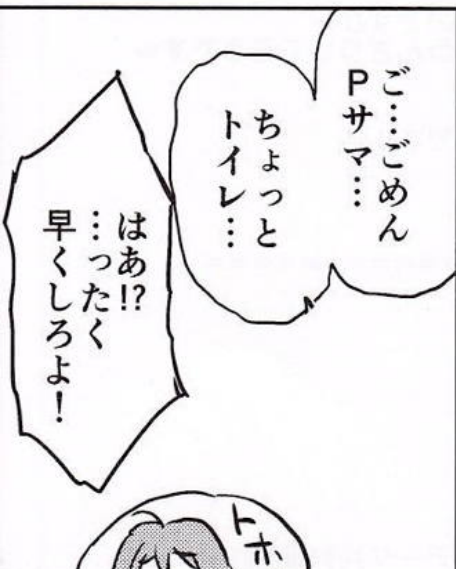 ご…ごめん
Pサマ…
ちょっと
トイレ…
はあ!?
…ったく
早くしろよ!
トホ